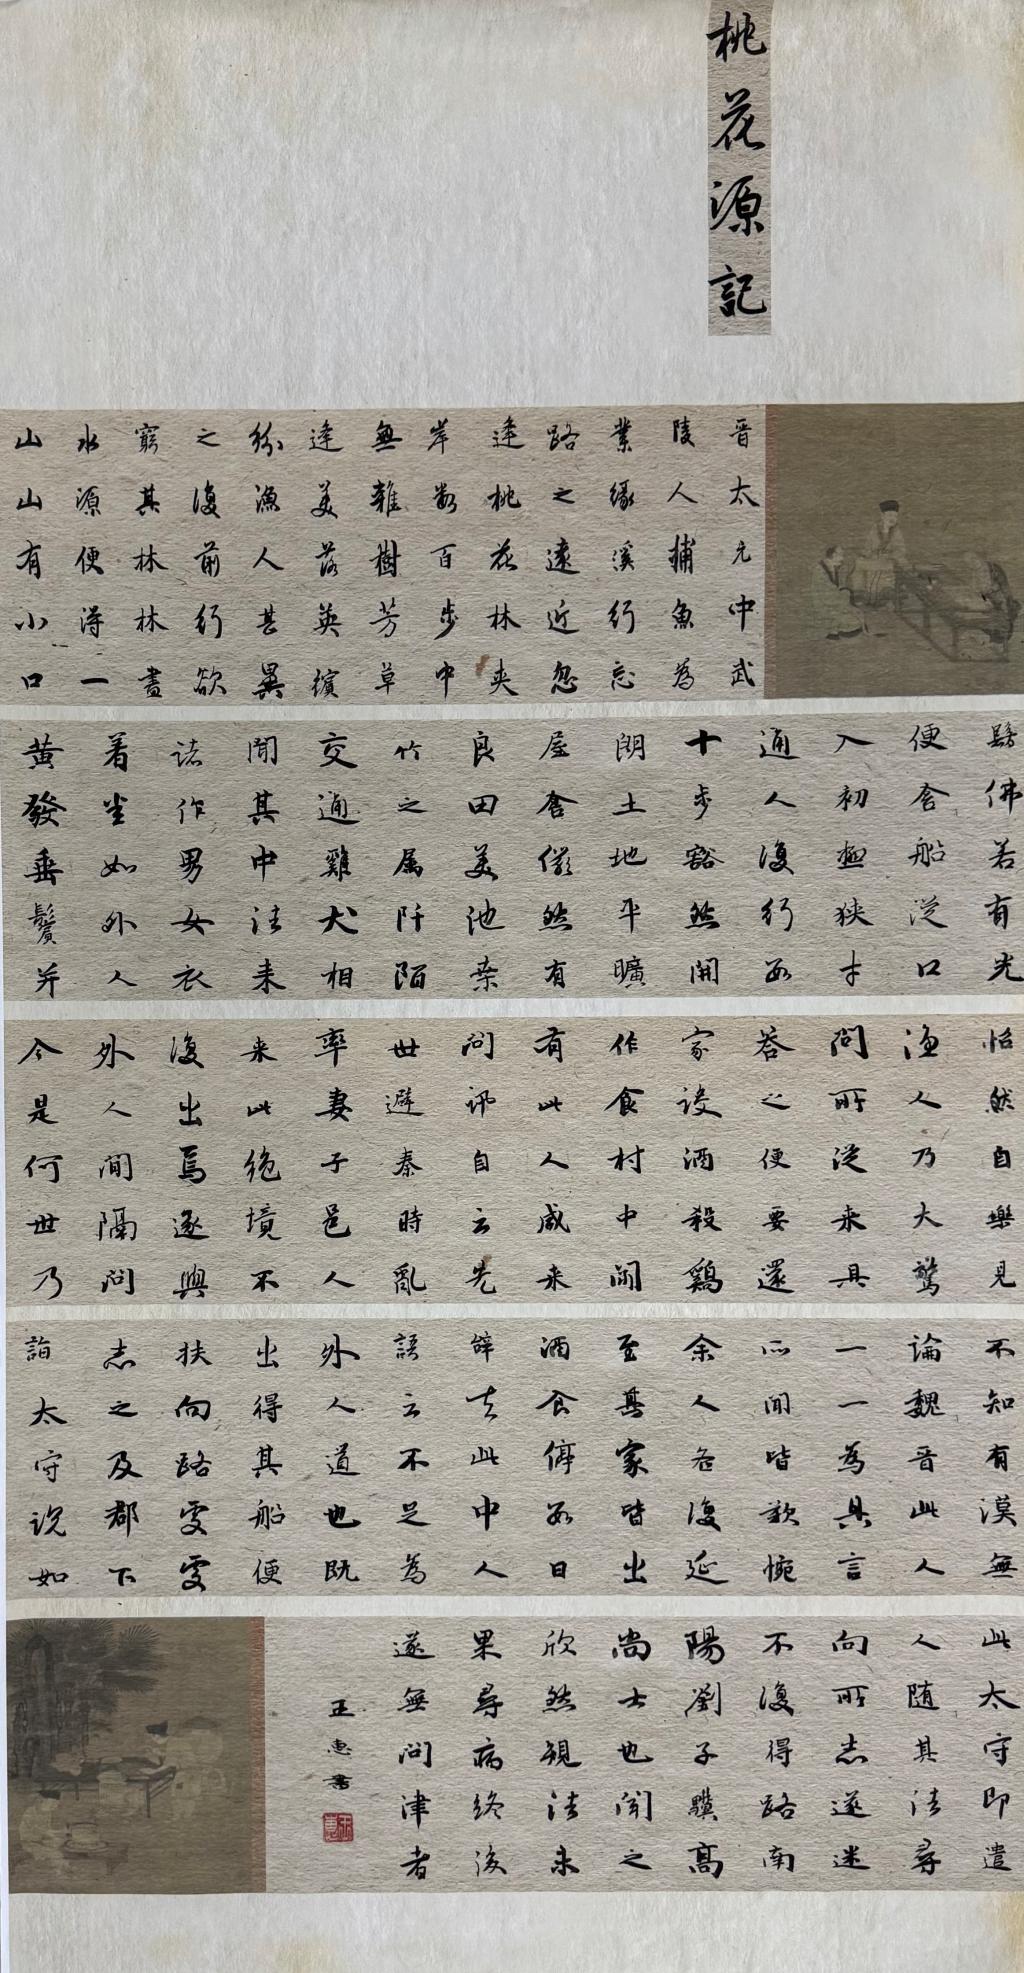 桃花源記
晋太元中武
陵人捕魚為
業緣溪行忘
路之遠近忽
逢桃花林夾
岸數百步中
無雜樹芳草
逢美落英繽
紛漁人甚異
之復前行欲
窮其林林盡
水源便得一
山山有小口
髣佛若有光
便舍船從口
入初極狹才
通人復行數
十步豁然開
朗土地平曠
屋舍儼然有
良田美池桑
竹之属阡陌
交通雞犬相
聞其中往来
诸作男女衣
着坐如外人
黄發垂鬢并
怡然自樂見
漁人乃大驚
問所從来具
答之便要還
家设酒殺鷄
作食村中聞
有此人咸来
問訊自云先
世避秦時亂
率妻子邑人
来此绝境不
復出焉遂與
外人間隔問
今是何世乃
不知有漠無
論魏晋此人
一一為具言
所聞皆歎惋
余人各復延
至其家皆出
酒食停數日
辭去此中人
語云不足為
外人道也既
出得其船便
扶向路處處
志之及郡下
詣太守説如
此太守即遣
人随其往尋
向所志遂迷
不復得路南
陽劉子驥高
尚士也聞之
欣然規往未
果尋病终後
遂無問津者
王惠書
王惠